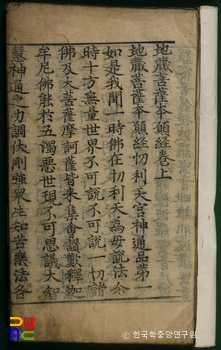 地藏菩薩夲願經卷上
地藏菩薩夲願經忉利天宮神通品第一
如是我聞一時佛在忉利天為母說法尒
時十方無量世界不可說不可說一切諸
佛及大菩薩摩訶薩皆來集會讚歎釋迦
牟尼佛能於五濁惡世現不可思議大智
慧神通之力調伏剛強衆生知苦樂法各
한국학중앙연구원